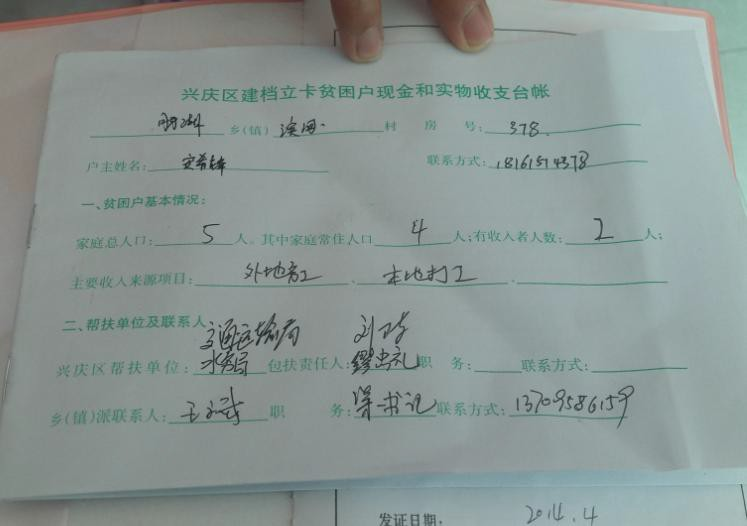 兴庆区建档立卡贫困户现金和实物收支台帐
乡(镇) 村 房 号: 378.
户主姓名: 联系方式: 18161574378
一、贫困户基本情况:
家庭总人口: 5 人。其中家庭常住人口 4 人;有收入者人数: 2 人;
主要收入来源项目: 外地打工 、 本地打工 、
二、帮扶单位及联系人
交通运输局
兴庆区帮扶单位: 水务局 包扶责任人: 职 务: 联系方式:
乡(镇)派联系人: 职 务: 书记 联系方式: 13709586159
发证日期: 2014.4